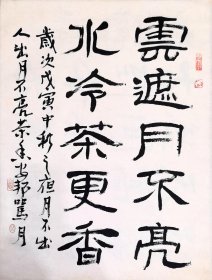 雲遮月不亮
水冷茶更香
歲次戊寅中秋之夜月不出
人出月不亮茶香出邦罵月